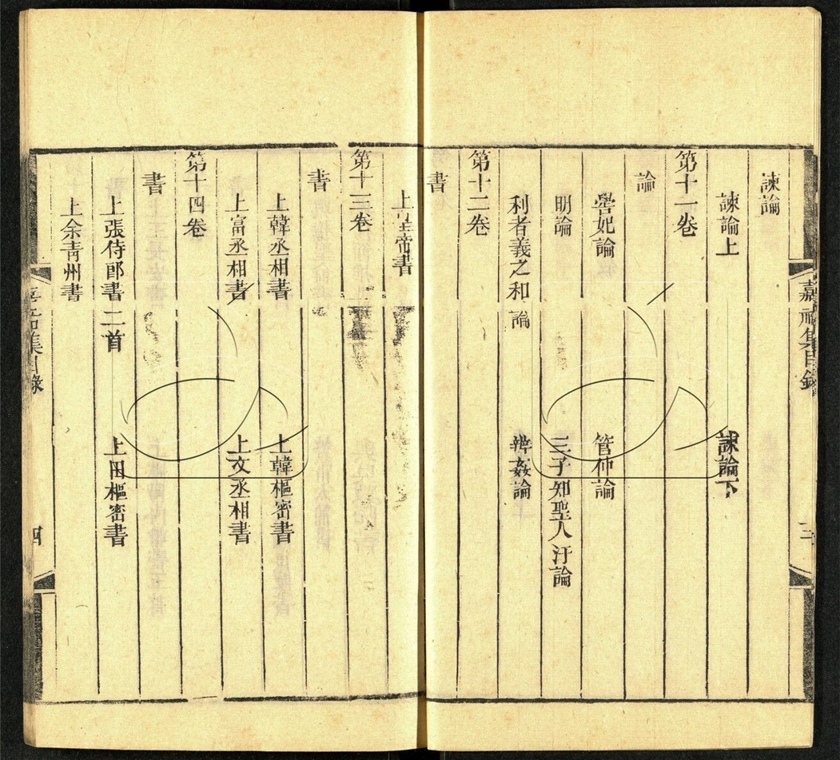 嘉祐集目錄
三
諫論
諫論上
諫論下
第十一卷
論
嚳妃論
管仲論
明論
三子知聖人汙論
利者義之和論
辨姦論
第十二卷
書
上皇帝書
第十三卷
書
上韓丞相書
上韓樞密書
上富丞相書
上文丞相書
第十四卷
書
上張侍郎書二首
上田樞密書
上余青州書
嘉祐集目錄
四